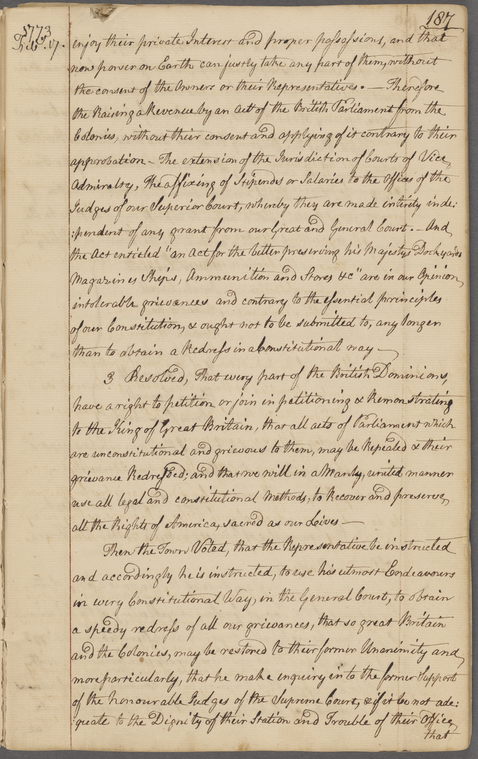 187
1773
Feb. 17.
enjoy their private Interest and proper possessions, and that
now power on Earth can justly take any part of them, without
the consent of the Owners or their Representatives. — Therefore
the Raising a Revenue by an act of the British Parliament from the
Colonies, without their consent and applying of it contrary to their
approbation - The extension of the Jurisdiction of Courts of Vice
Admiralty, The affixing of Stipends or Salaries to the Offices of the
Judges of our Superior Court, whereby they are made intirely inde:
:pendent of any grant from our Great and General Court. - And
the Act entitled "an Act for the better preserving his Majestys Dockyards
Magazines Ships, Ammunition and Stores &c" are in our Opinion
intolerable grievances and contrary to the essential principles
of our Constitution, & ought not to be submitted to, any longer
than to obtain a Redress in a Constitutional way —
3 Resolved, That every part of the British Dominions,
have a right to petition, or join in petitioning & Remonstrating
to the King of Great Britain, that all acts of Parliament which
are unconstitutional and grievous to them, may be Repealed & their
grievance Redressed; and that we will in a Manly, united manner
use all legal and constitutional Methods, to Recover and preserve,
all the Rights of America, sacred as our Lives —
Then the Town Voted, that the Representative be instructed
and accordingly he is instructed, to use his utmost Endeavours
in every Constitutional Way, in the General Court, to obtain
a speedy redress of all our grievances, that so great Britain
and the Colonies, may be restored to their former Unanimity and
more particularly, that he make enquiry into the former Support
of the honourable Judges of the Supreme Court, & if it be not ade:
:quate to the Dignity of their Station and Trouble of their Office
that